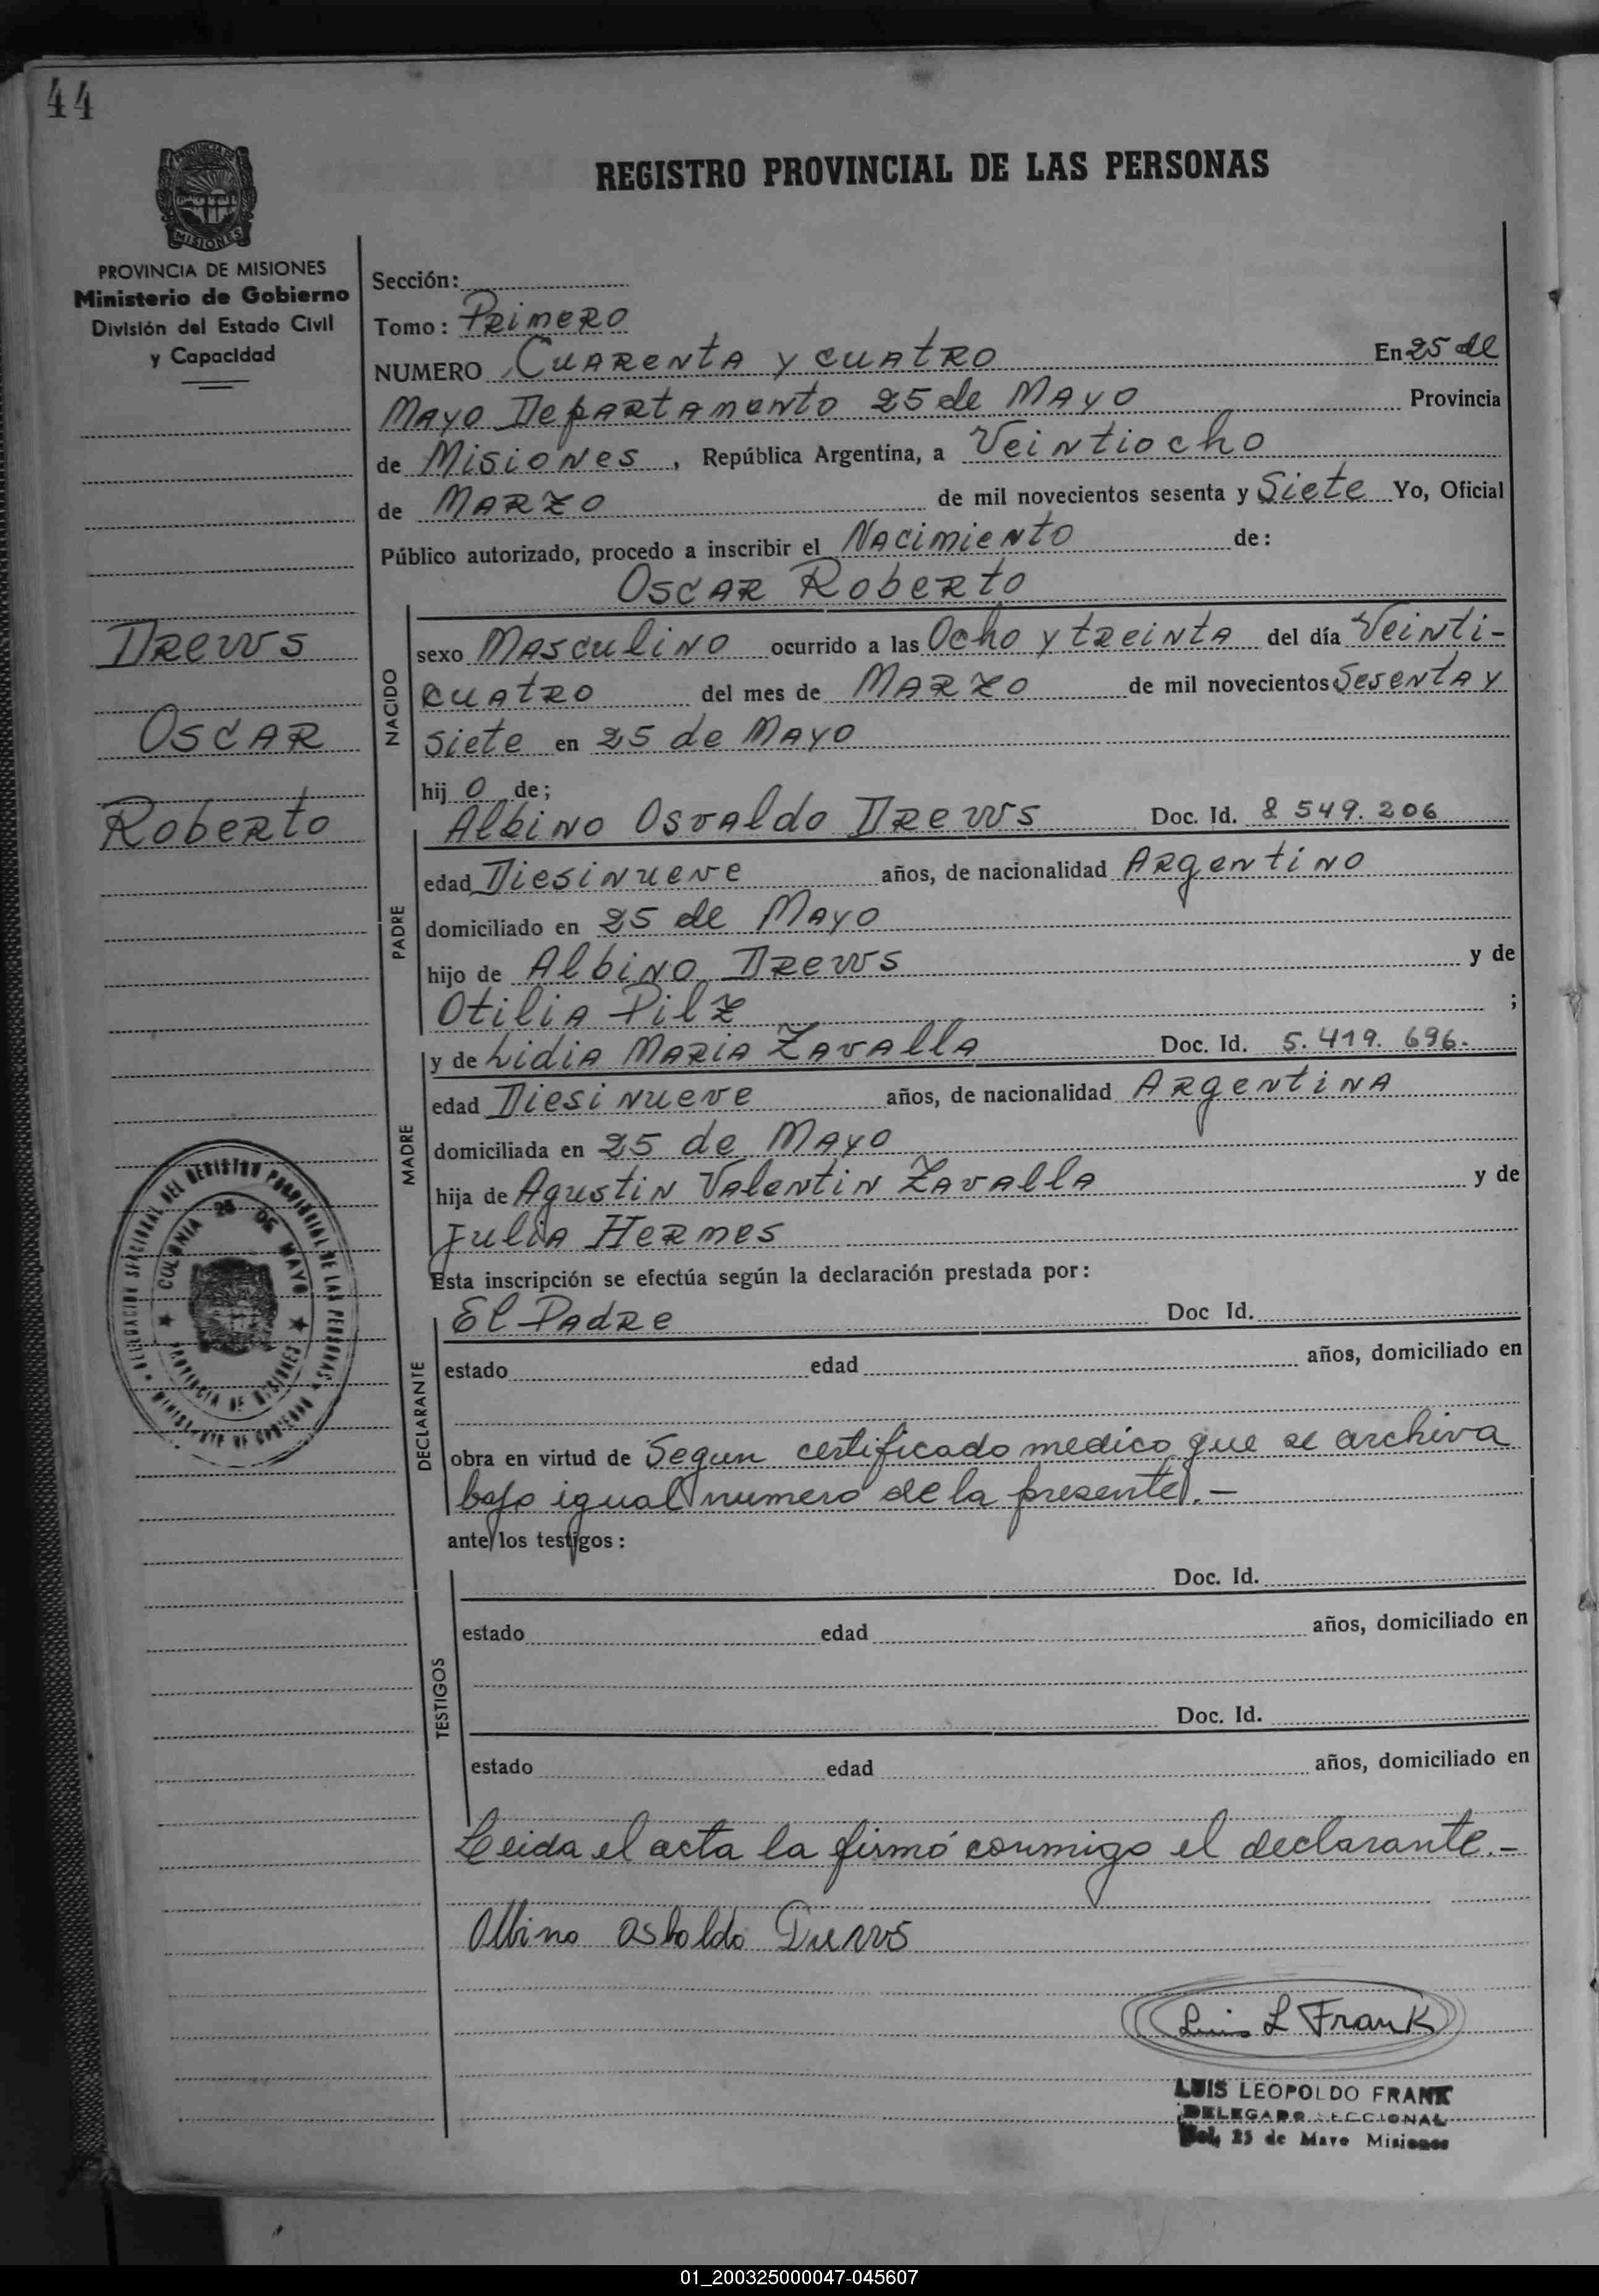 44
PROVINCIA DE
MISIONES
REGISTRO PROVINCIAL DE LAS PERSONAS
PROVINCIA DE MISIONES
Ministerio de Gobierno
División del Estado Civil
y Capacidad
Drews
Oscar
Roberto
Sección:
Tomo: Primero
NUMERO Cuarenta y cuatro En 25 de
Mayo Departamento 25 de Mayo Provincia
de Misiones, República Argentina, a Veintiocho
de Marzo de mil novecientos sesenta y Siete Yo, Oficial
Público autorizado, procedo a inscribir el Nacimiento de:
Oscar Roberto
NACIDO
sexo Masculino ocurrido a las Ocho y treinta del día Veinti-
cuatro del mes de Marzo de mil novecientos Sesenta y
siete en 25 de Mayo
hij o de;
Albino Osvaldo Drews Doc. Id. 8 549.206
PADRE
edad Diesinueve años, de nacionalidad Argentino
domiciliado en 25 de Mayo
hijo de Albino Drews y de
Otilia Pilz ;
y de Lidia Maria Zavalla Doc. Id. 5.419.696.
MADRE
edad Diesinueve años, de nacionalidad Argentina
domiciliada en 25 de Mayo
hija de Agustin Valentin Zavalla y de
Julia Hermes
Esta inscripción se efectúa según la declaración prestada por:
El Padre Doc Id.
DECLARANTE
estado edad años, domiciliado en
obra en virtud de Segun certificado medico que se archiva
bajo igual numero de la presente.-
ante los testigos:
Doc. Id.
TESTIGOS
estado edad años, domiciliado en
Doc. Id.
estado edad años, domiciliado en
Leida el acta la firmó conmigo el declarante.-
Albino Osbaldo Drews
Luis L Frank
LUIS LEOPOLDO FRANK
DELEGADO SECCIONAL
Col. 25 de Mayo Misiones
DELEGACION SECCIONAL DEL REGISTRO PROVINCIAL DE LAS PERSONAS
COLONIA 25 DE MAYO
PROVINCIA DE MISIONES
MINISTERIO DE GOBIERNO
01_200325000047-045607